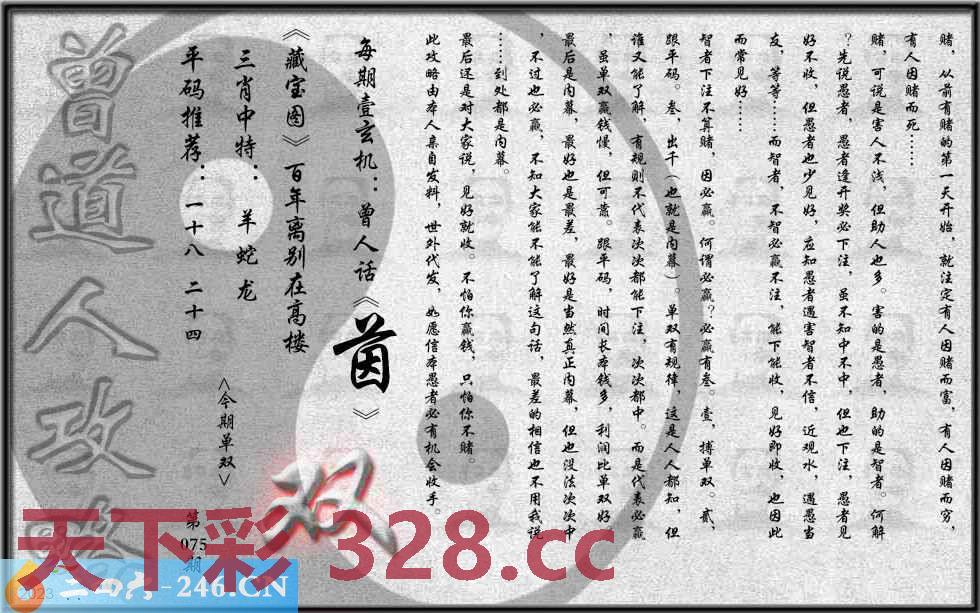 赌，从前有赌的第一天开始，就注定有人因赌而富，有人因赌而穷，
有人因赌而死……
赌，可说是害人不浅，但助人也多。害的是愚者，助的是智者。何解
？先说愚者，愚者逢开奖必下注，虽不知中不中，但也下注，愚者见
好不收，但愚者也少见好，应知愚者遇害智者不信，近观水，遇愚当
友，等等……而智者，不智必赢不注，能下能收，见好即收，也因此
而常见好……
智者下注不算赌，因必赢。何谓必赢？必赢有叁。壹，搏单双。贰，
跟平码。叁，出千（也就是内幕）。单双有规律，这是人人都知，但
谁又能了解，有规则不代表次次都能下注，次次都中。而是代表必赢
，虽单双赢钱慢，但可靠。跟平码，时间长本钱多，利润比单双好。
最后是内幕，最好也是最差，最好是当然真正内幕，但也没法次次中
，不过也必赢，不知大家能不能了解这句话，最差的相信也不用我说
……到处都是内幕。
最后还是对大家说，见好就收。不怕你赢钱，只怕你不赌。
此攻略由本人亲自发料，世外代发，如愿信本愚者必有机会收手。
每期壹玄机：曾人话《茵》
《藏宝图》百年离别在高楼
三肖中特：羊蛇龙
平码推荐：一十八 二十四
<今期单双>
双
第075期
曾道人攻略
天下彩 328.cc
二四六-246.CN
2023